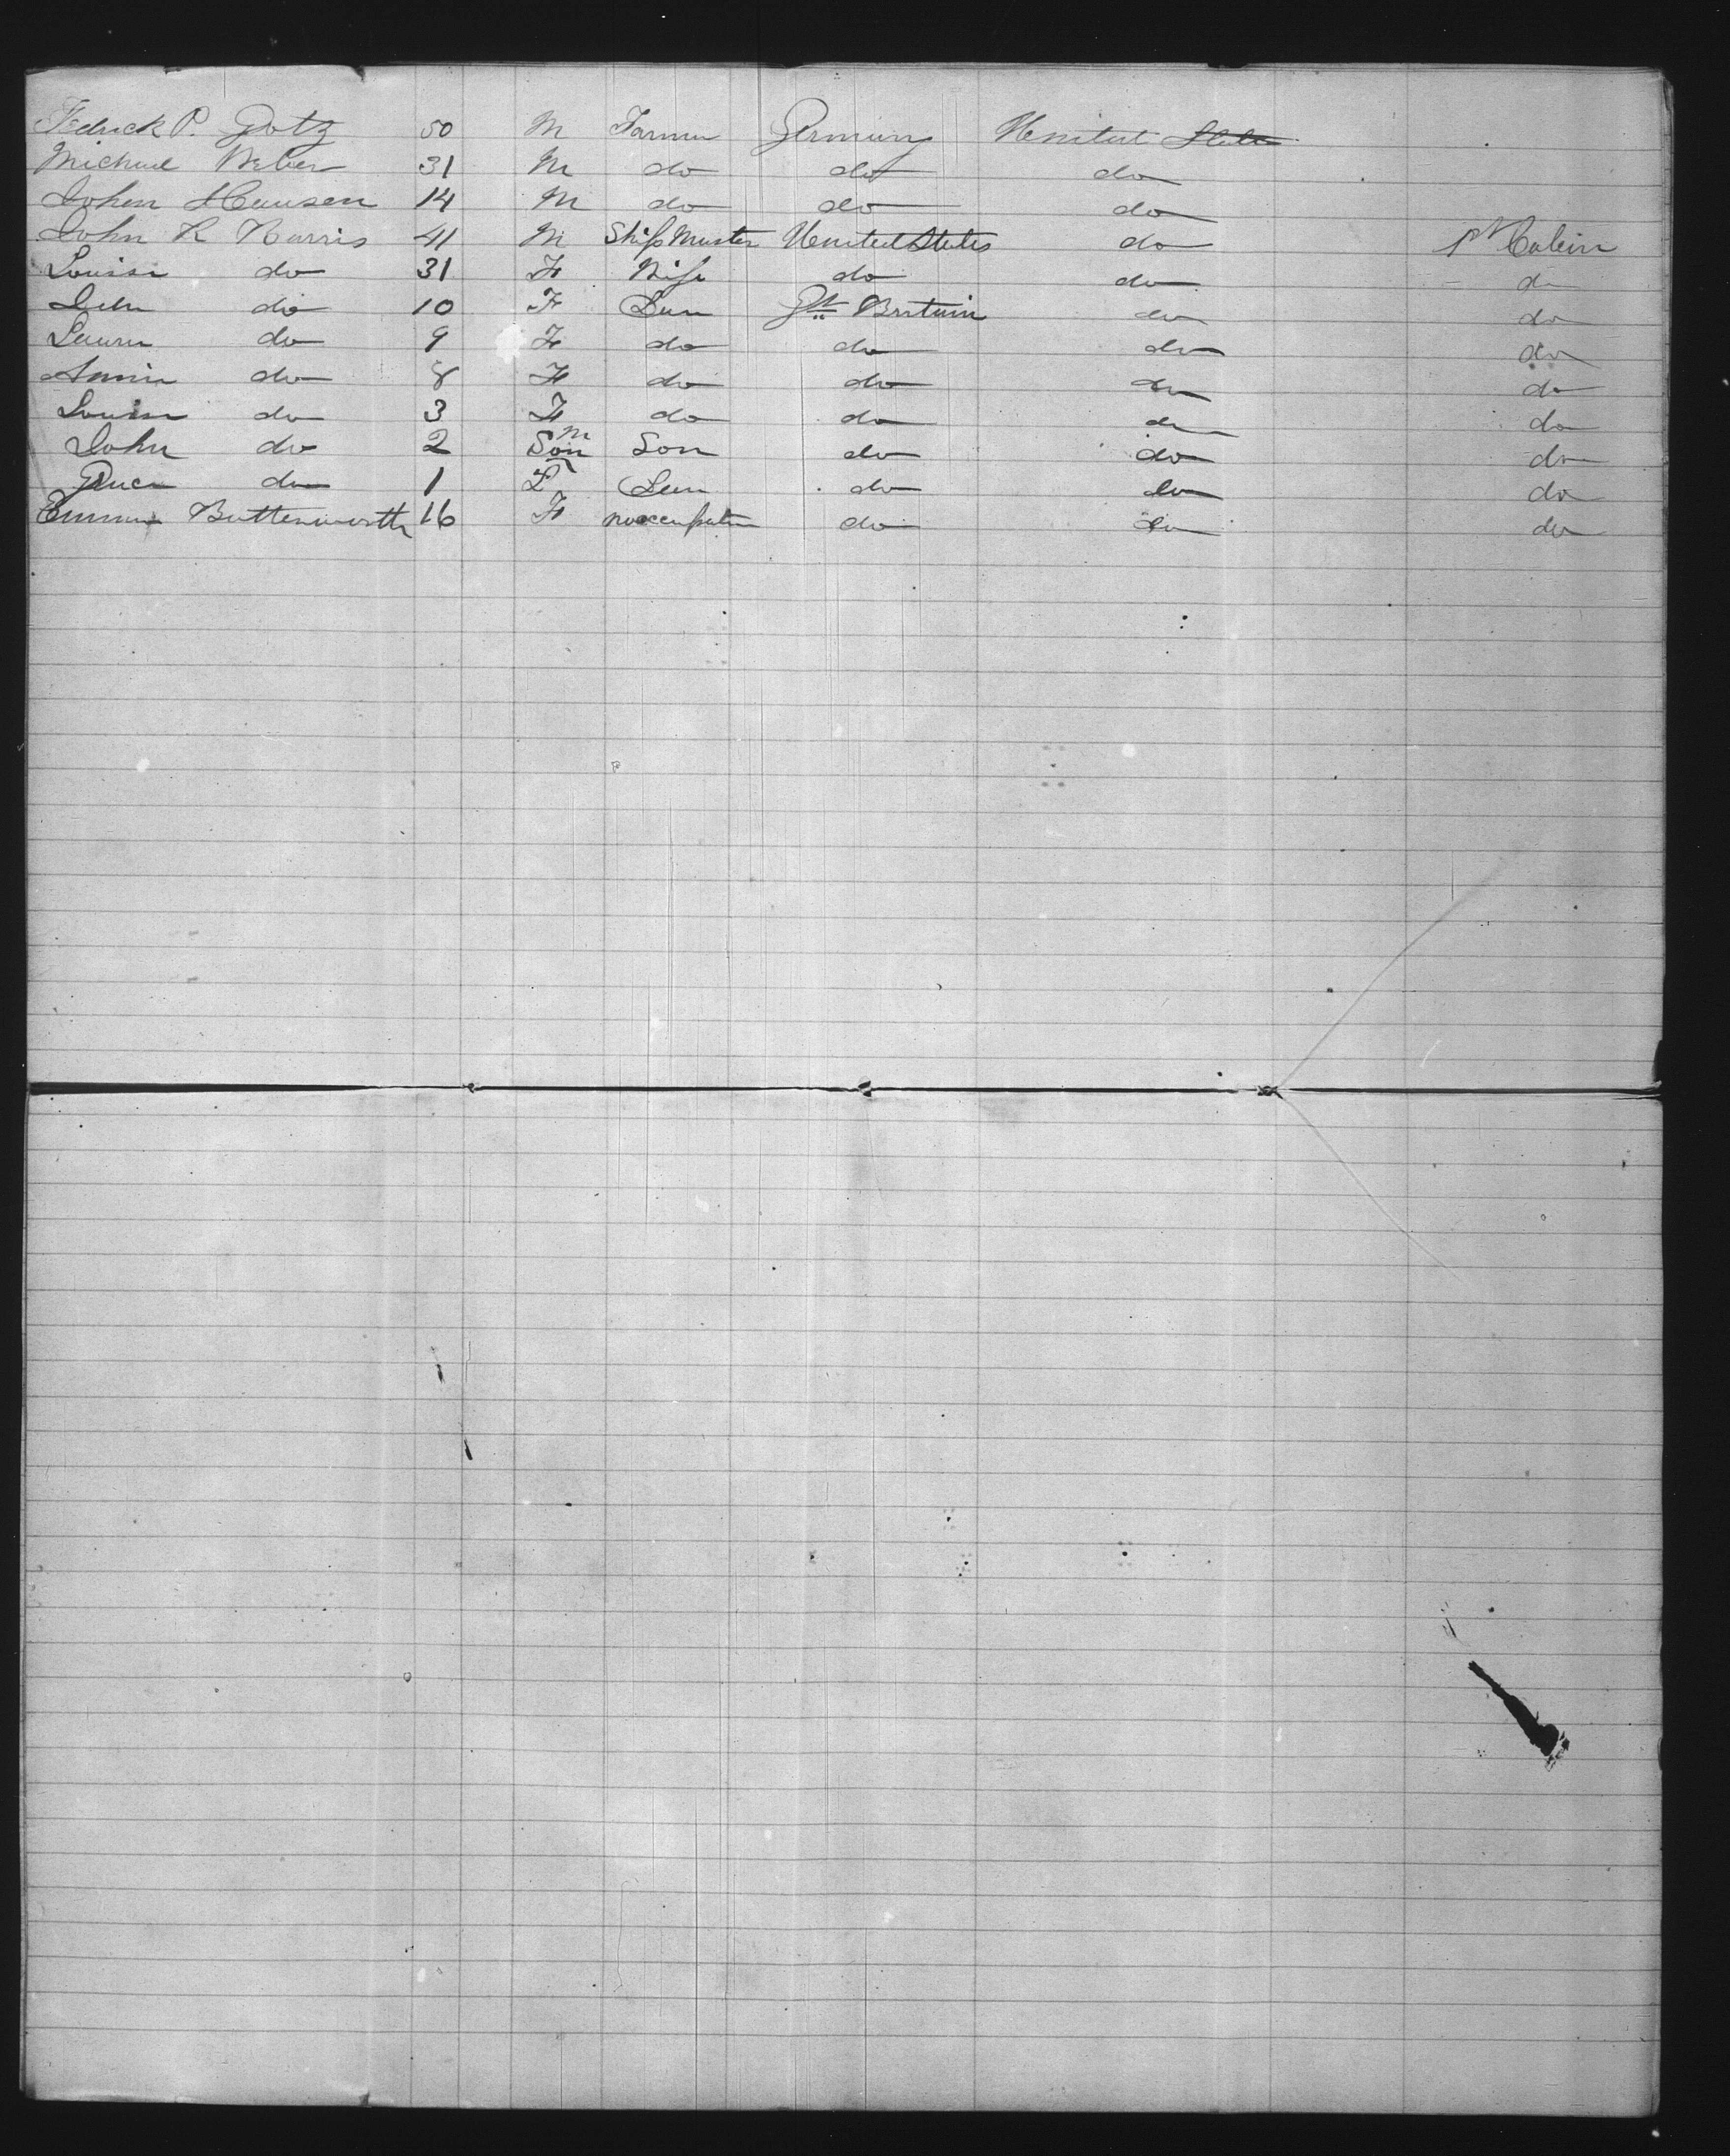 Fedrick P. Gotz 50 M Farmer Germany United States
Michael Weber 31 M do do do
John Hansen 14 M do do do
John R Harris 41 M Ship Master United States do 1st Cabin
Louisa do 31 F Wife do do do
do 10 F Gt Britain do do
Laura do 9 F do do do do
Annie do 8 F do do do do
Louisa do 3 F do do do do
John do 2 M Son Son do do do
do 1 F do do do
Emma Butterworth 16 F no occupation do do do